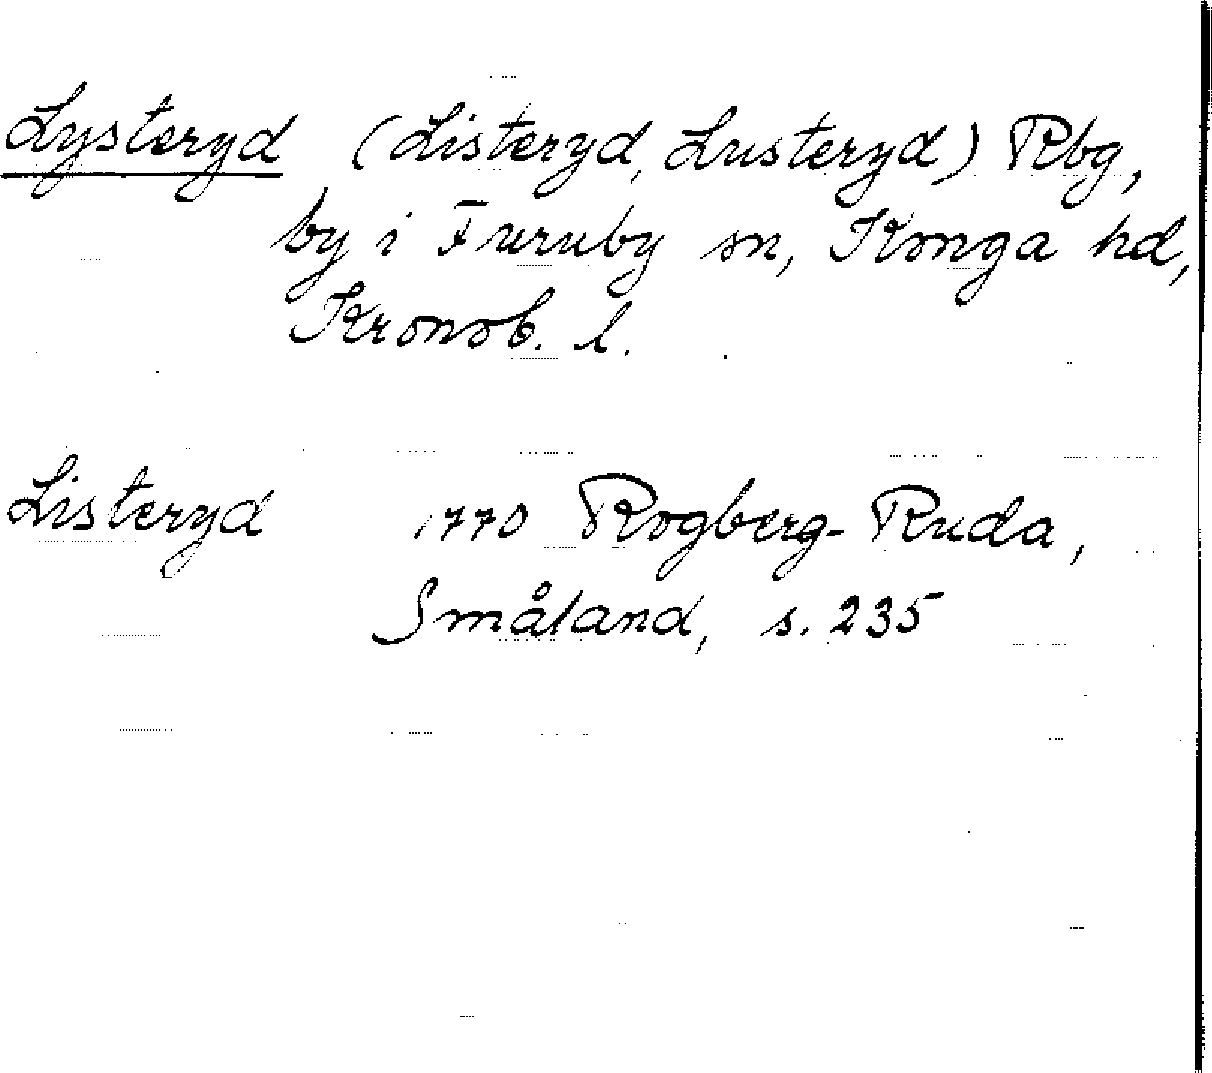 Lysteryd (Listeryd, Lusteryd) Rbg,
by i Furuby sn, Konga hd,
Kronob. l.
Listeryd 1770 Rogberg-Ruda,
Småland, s. 235